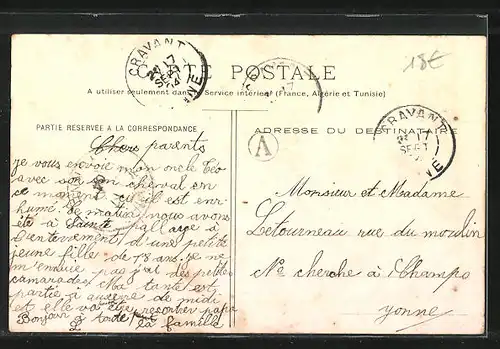 CARTE POSTALE
18€
A utiliser seulement dans le Service intérieur (France, Algérie et Tunisie)
PARTIE RÉSERVÉE A LA CORRESPONDANCE
Chers parents
je vous envoie mon oncle Léo
avec son cheval en
ce moment qu'il est enr
humé. Se matin nous avons
été à Sainte pallaye à
L'enterrement d'une petite
jeune fille de 18 ans. je ne
m'ennuie pas j'ai des petites
camarades. Ma tante est
partie à auxerre de midi
et elle va être rencontrer papa
Bonjour à toute la famille
ADRESSE DU DESTINATAIRE
A
Monsieur et Madame
Letourneau rue du moulin
Ne cherche à Champs
yonne
CRAVANT
17
SEPT
CRAVANT
17
SEPT
NE